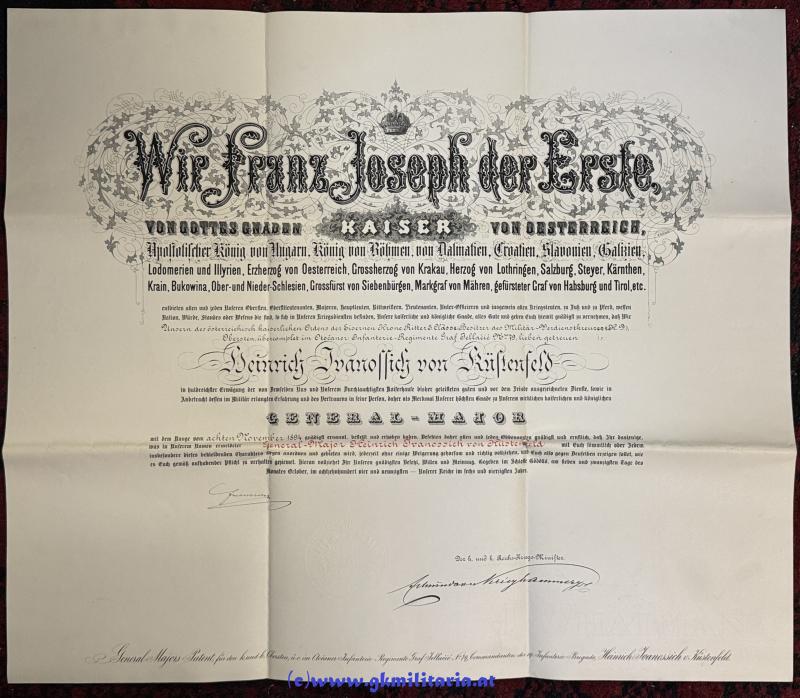 Wir Franz Joseph der Erste,
VON GOTTES GNADEN KAISER VON OESTERREICH,
Apostolischer König von Ungarn, König von Böhmen, von Dalmatien, Croatien, Slavonien, Galizien,
Lodomerien und Illyrien, Erzherzog von Oesterreich, Grossherzog von Krakau, Herzog von Lothringen, Salzburg, Steyer, Kärnthen,
Krain, Bukowina, Ober- und Nieder-Schlesien, Grossfürst von Siebenbürgen, Markgraf von Mähren, gefürsteter Graf von Habsburg und Tirol, etc.
entbieten allen und jeden Unseren Obersten, Oberstlieutenanten, Majoren, Hauptleuten, Rittmeistern, Lieutenanten, Unter-Officieren und insgemein allen Kriegsleuten, zu Fuß und zu Pferd, wessen
Nation, Würde, Standes oder Wesens die sind, so sich in Unseren Kriegsdiensten befinden, Unsere kaiserliche und königliche Gnade, alles Gute und geben Euch hiemit gnädigst zu vernehmen, daß Wir
Unsern des österreichisch kaiserlichen Ordens der Eisernen Krone Ritter 3. Classe, Besitzer des Militär-Verdienstkreuzes
Obersten, übercomplet im Otočaner Infanterie-Regimente Graf Jellačić No. 79, lieben getreuen
Heinrich Ivanossich von Küstenfeld
in huldreichster Erwägung der von demselben Uns und Unserem Durchlauchtigsten Kaiserhause bisher geleisteten guten und vor dem Feinde ausgezeichneten Dienste, sowie in
Anbetracht dessen im Militär erlangten Erfahrung und des Vertrauens in seine Person, daher als Merkmal Unserer höchsten Gnade zu Unserem wirklichen kaiserlichen und königlichen
GENERAL-MAJOR
mit dem Range vom achten November 1894 gnädigst ernannt, bestellt und erhoben haben. Befehlen daher allen und jeden Obbenannten gnädigst und ernstlich, daß Ihr dasjenige,
was in Unserem Namen ernannter General-Major Heinrich Ivanossich von Küstenfeld mit Euch sämmtlich oder Jedem
insbesondere dieses bekleidenden Charakters wegen anordnen und gebieten wird, jederzeit ohne einige Weigerung gehorsam und richtig vollziehet, und Euch also gegen Denselben erzeigen sollet, wie
es Euch gemäß aufhabender Pflicht zu verhalten geziemet. Hieran vollziehet Ihr Unseren gnädigsten Befehl, Willen und Meinung. Gegeben im Schloße Gödöllő, am sieben und zwanzigsten Tage des
Monates October, im achtzehnhundert vier und neunzigsten — Unserer Reiche im sechs und vierzigsten Jahre.
Der k. und k. Reichs-Kriegs-Minister.
General-Majors Patent, für den k. und k. Obersten, ü. c. im Otočaner Infanterie-Regimente Graf Jellačić Nr. 79, Commandanten der 19. Infanterie-Brigade, Heinrich Ivanossich v. Küstenfeld.
(c)www.gkmilitaria.at